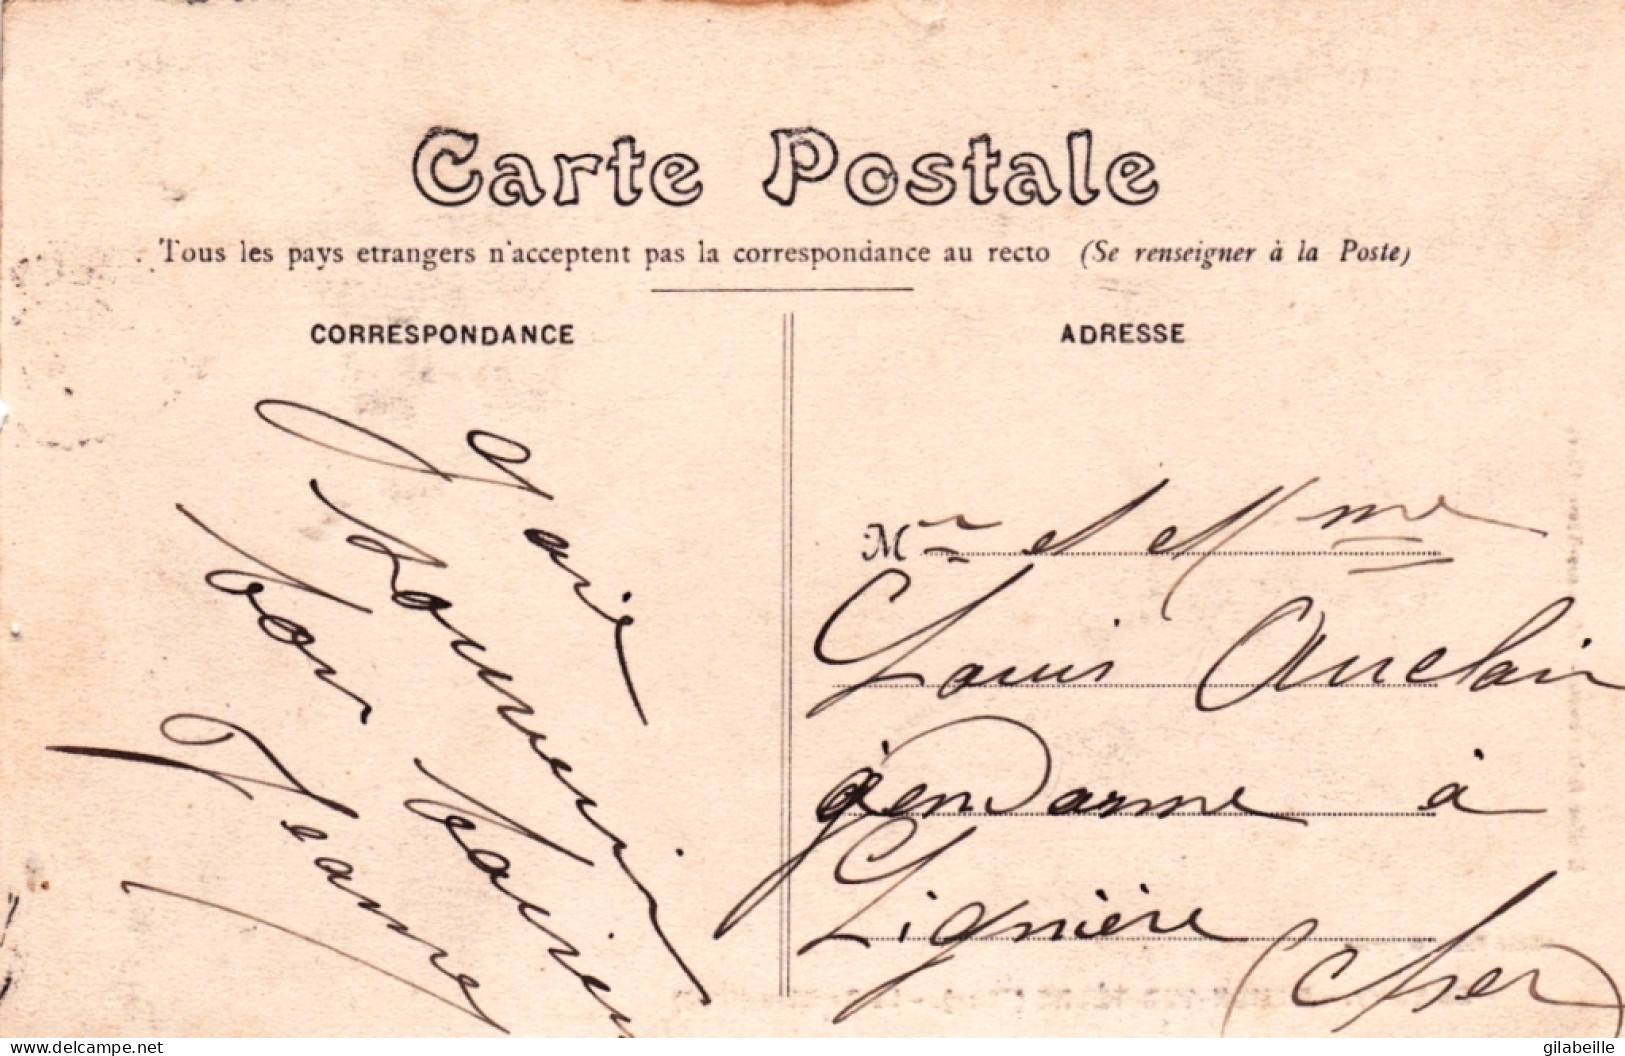 Carte Postale
Tous les pays etrangers n'acceptent pas la correspondance au recto (Se renseigner à la Poste)
CORRESPONDANCE
ADRESSE
Souvenir
Jeanne
Mr et Mme
Louis Auclair
gendarme à
Lignière
(Cher)
delcampe.net
gilabeille